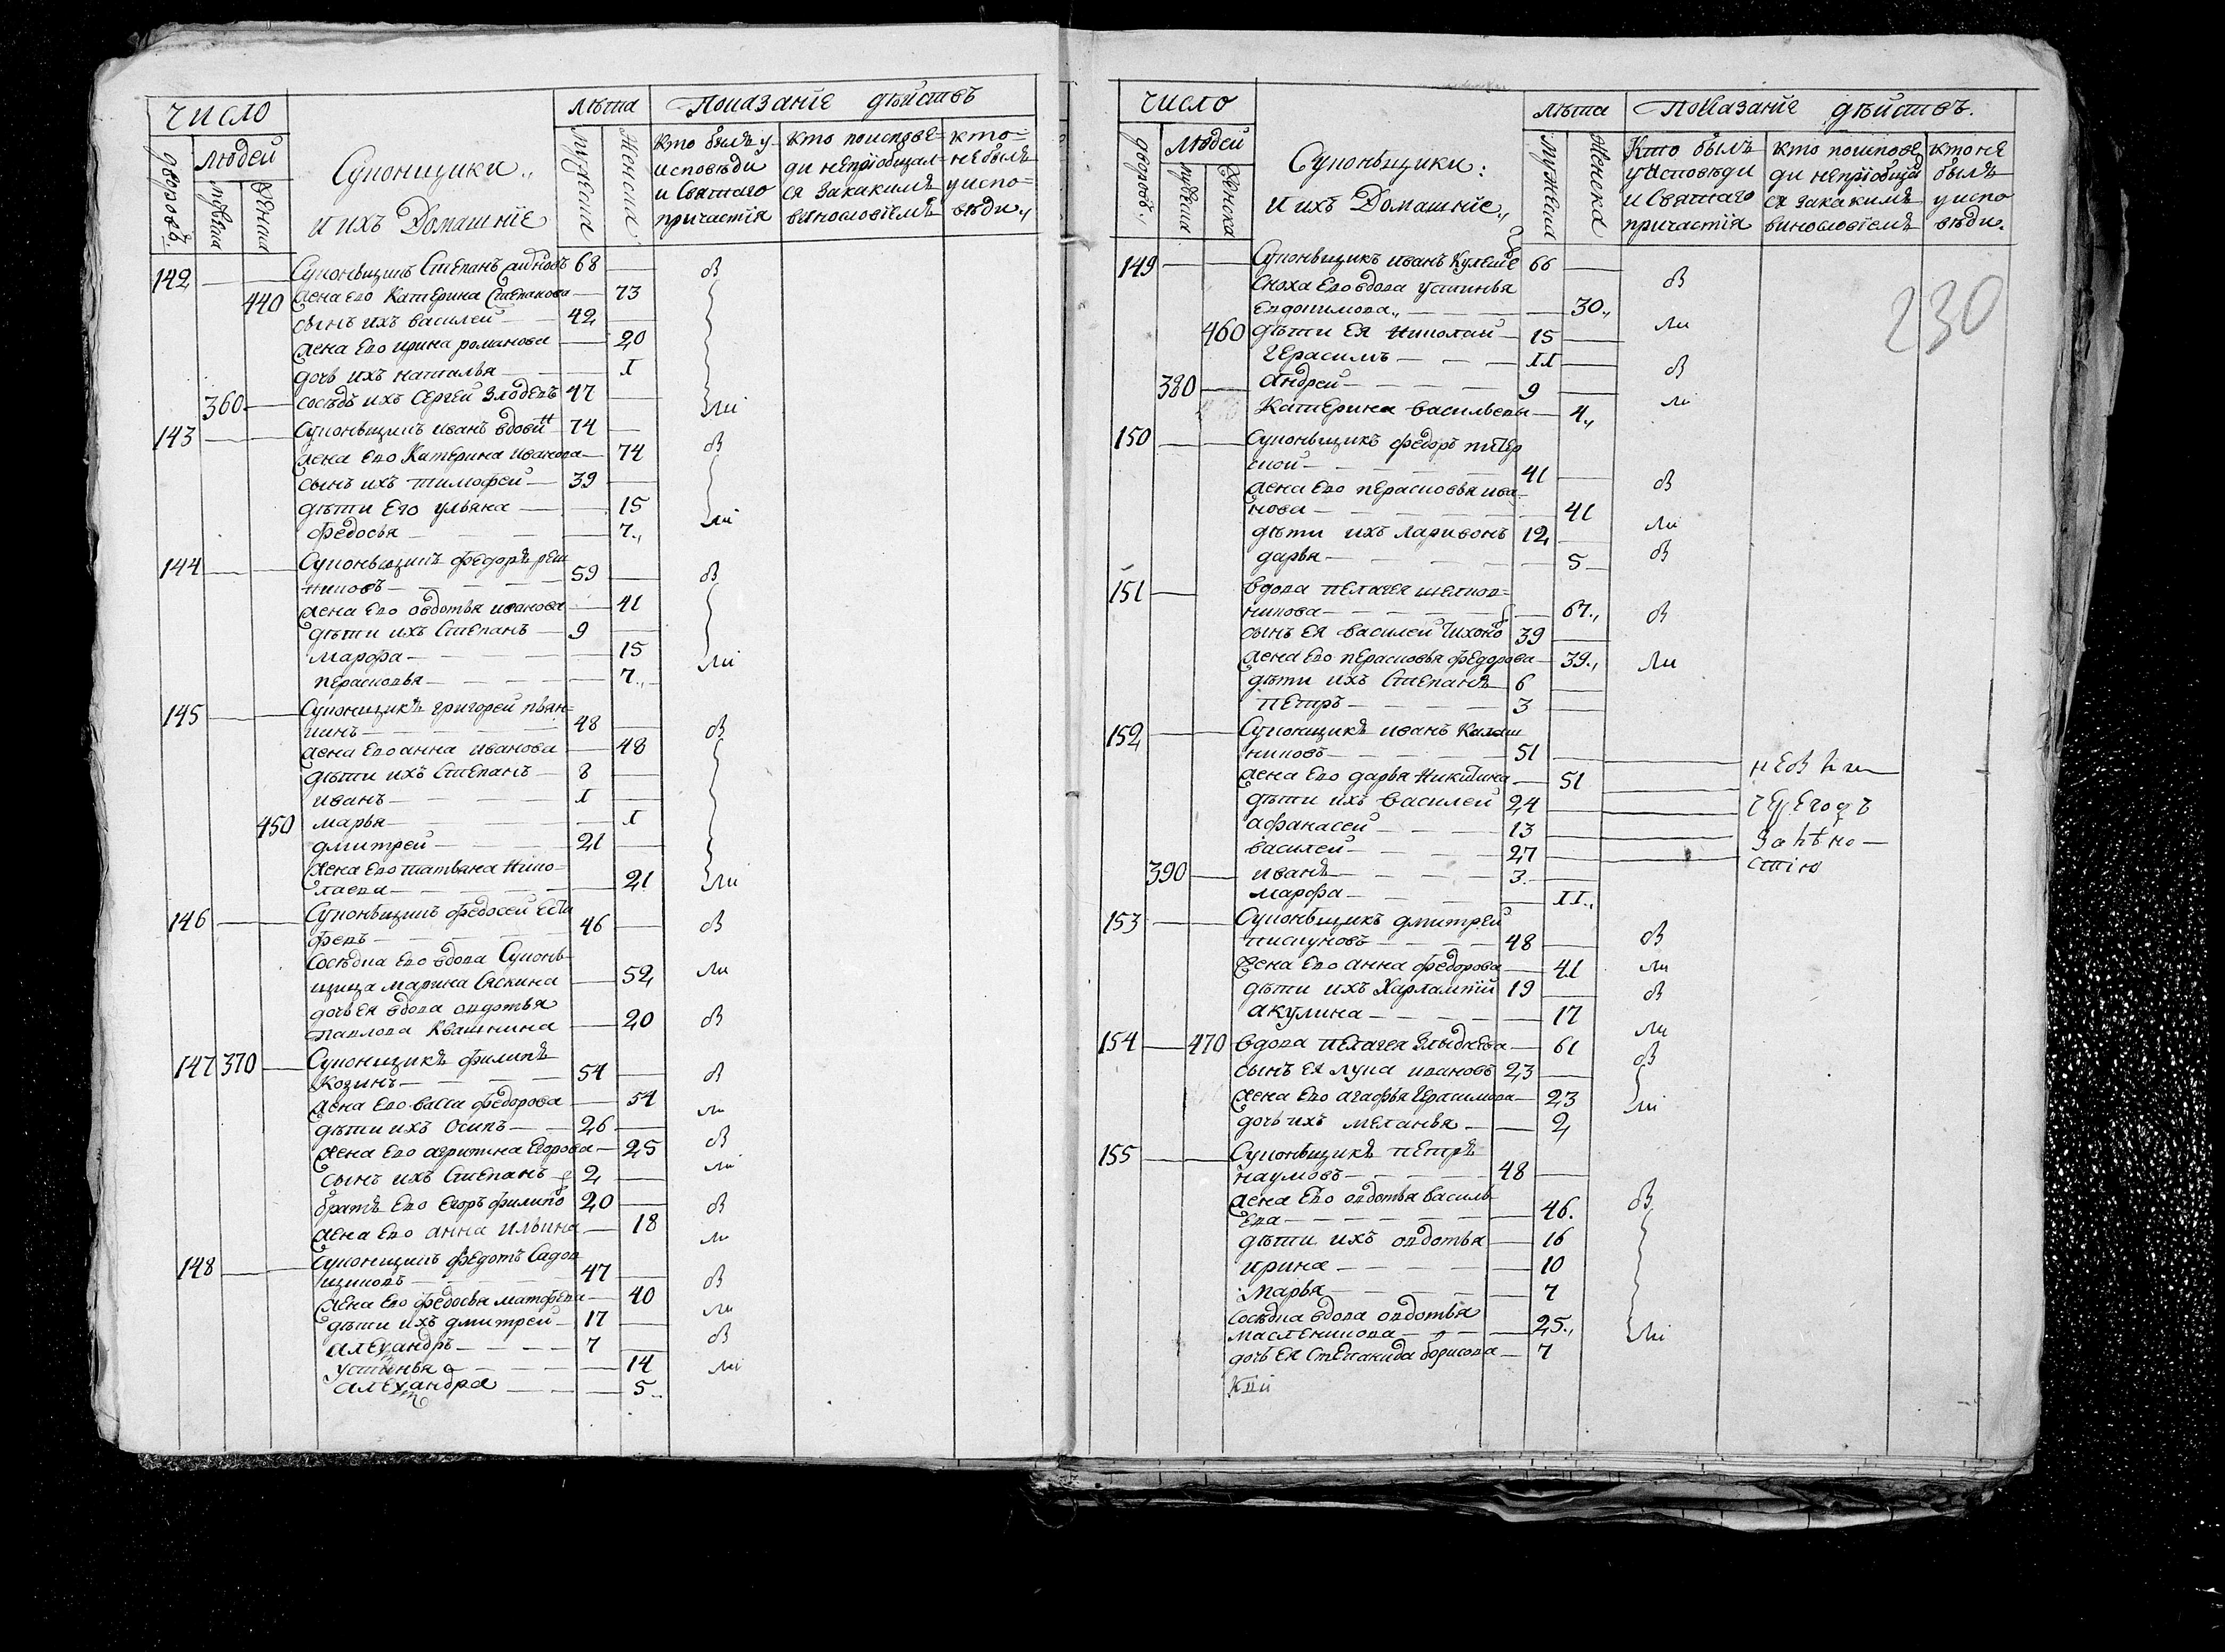 число
людей
дворовъ
мужеска
женска
Суконщики
и ихъ Домашнїе
лѣта
мужеска
Женска
показанїе дѣйствъ
кто былъ у
исповѣди
и Святаго
причастїя
кто поисповѣ=
ди непрїобщал=
ся закакимъ
винословїемъ
кто=
небылъ
уиспо=
вѣди
142 Суконьщикъ Степанъ 68
440 жена ево Катерина Степанова 73
сынъ ихъ василей 42
жена ево ирина романова 20
дочь ихъ наталья I
360 сосѣдъ ихъ Сергей 47
143 Суконьщикъ иванъ вдовин 74
жена ево Катерина иванова 74
сынъ ихъ тимофей 39
дѣти Его ульяна 15
федосья 7
144 Суконьщикъ федоръ реш
никовъ 59
жена ево овдотья иванова 41
дѣти ихъ Степанъ 9
марфа 15
перасковья 7
145 Суконщикъ григорей пьян=
кинъ 48
жена ево анна иванова 48
дѣти ихъ Степанъ 8
иванъ I
450 марья I
дмитрей 21
жена ево татьяна Нико=
лаева 21
146 Суконьщикъ федосей Ести
феевъ 46
Сосѣдка ево вдова Суконь=
щица марина Сяскина 52
дочь ея вдова овдотья
павлова Квашнина 20
147 370 Суконщикъ филипъ
Козинъ 54
жена ево васса федорова 54
дѣти ихъ Осипъ 26
жена ево агрипина Егорова 25
сынъ ихъ Степанъ 2
братъ ево Егоръ филипов 20
жена ево анна ильина 18
148 Суконщикъ федотъ Садов
щиковъ 47
жена ево федосья матфева 40
дѣти ихъ дмитрей 17
александръ 7
устинья 14
александра 5
число
дворовъ
людей
мужеска
женска
Суконьщики
и ихъ Домашнїе
лѣта
мужеска
женска
показанїе дѣйствъ.
Кто былъ
уисповѣди
и Святаго
причастїя
кто поисповѣ
ди непрїобщал
ся закакимъ
винословїемъ
кто не
былъ
у испо
вѣди
230
149 Суконьщикъ иванъ Кулеше 66
Сноха Ево вдова устинья
Евдокимова 30
460 дѣти Ея Николай 15
герасимъ II
380 андрей 9
Катерина васильева 4
150 Суконьщикъ федоръ питер
ской 41
жена Ево перасковья ива=
нова 41
дѣти ихъ ларивонъ 12
дарья 5
151 вдова пелагея шелков=
никова 67
сынъ ея василей Тихонов 39
жена Ево перасковья федорова 39
дѣти ихъ Степанъ 6
петръ 3
152 Суконщикъ иванъ Калаш
никовъ 51
жена Ево дарья Никитина 51
дѣти ихъ василей 24
афанасей 13
василей 27
390 иванъ 3
марфа II
153 Суконьщикъ дмитрей
пискуновъ 48
жена Ево анна федорова 41
дѣти ихъ Харлампий 19
акулина 17
154 470 вдова пелагея 61
сынъ ея лука ивановъ 23
жена Ево агафья герасимова 23
дочь ихъ меланья 2
155 Суконьщикъ петръ
наумовъ 48
жена Ево овдотья василь
ева 46
дѣти ихъ овдотья 16
ирина 10
марья 7
сосѣдка вдова овдотья
масленикова 25
дочь ея Степанида борисова 7